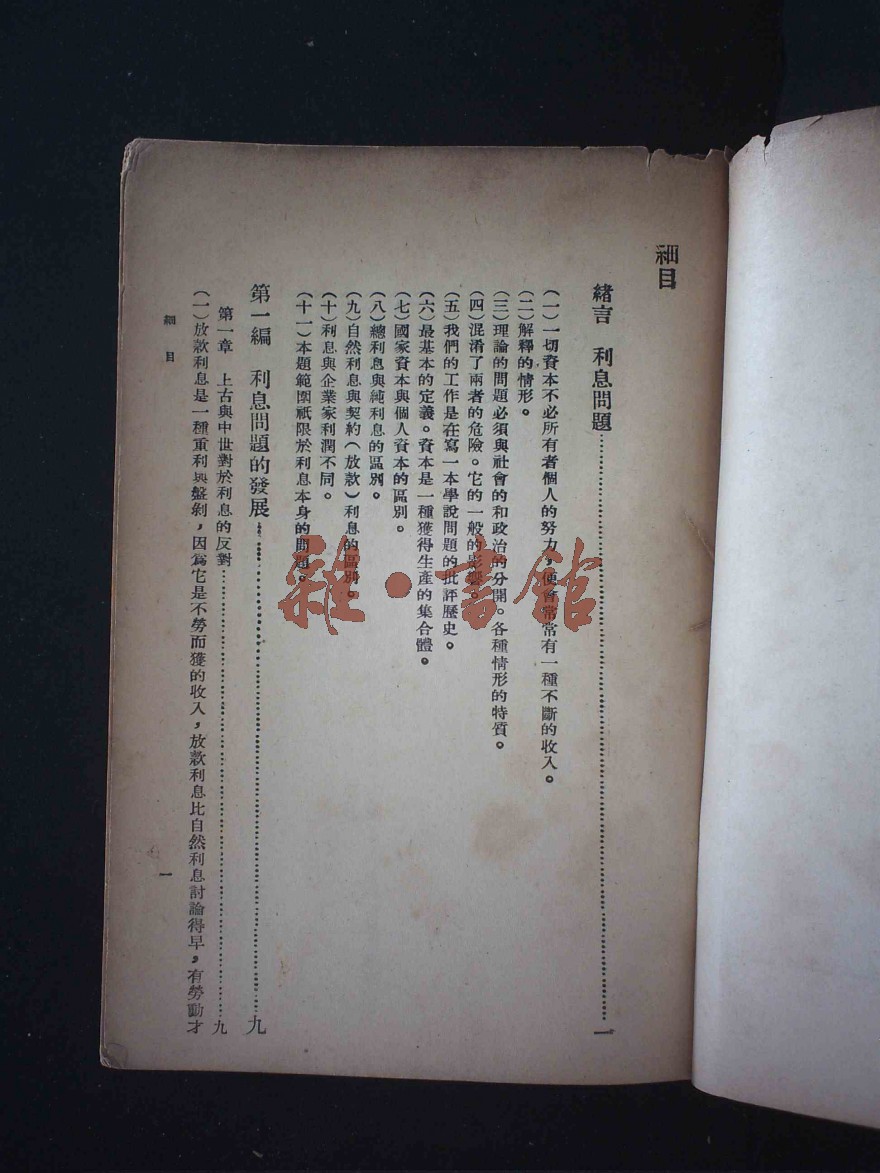 細目
緒言　利息問題……一
（一）一切資本不必所有者個人的努力，便會常常有一種不斷的收入。
（二）解釋的情形。
（三）理論的問題必須與社會的和政治的分開。各種情形的特質。
（四）混淆了兩者的危險。它的一般的影響。
（五）我們的工作是在寫一本學說問題的批評歷史。
（六）最基本的定義。資本是一種獲得生產的集合體。
（七）國家資本與個人資本的區別。
（八）總利息與純利息的區別。
（九）自然利息與契約（放款）利息的區別。
（十）利息與企業家利潤不同。
（十一）本題範圍祇限於利息本身的問題。
第一編　利息問題的發展……九
第一章　上古與中世對於利息的反對……九
（一）放款利息是一種重利與盤剝，因為它是不勞而獲的收入，放款利息比自然利息討論得早，有勞動才
細目
一
雜·書館